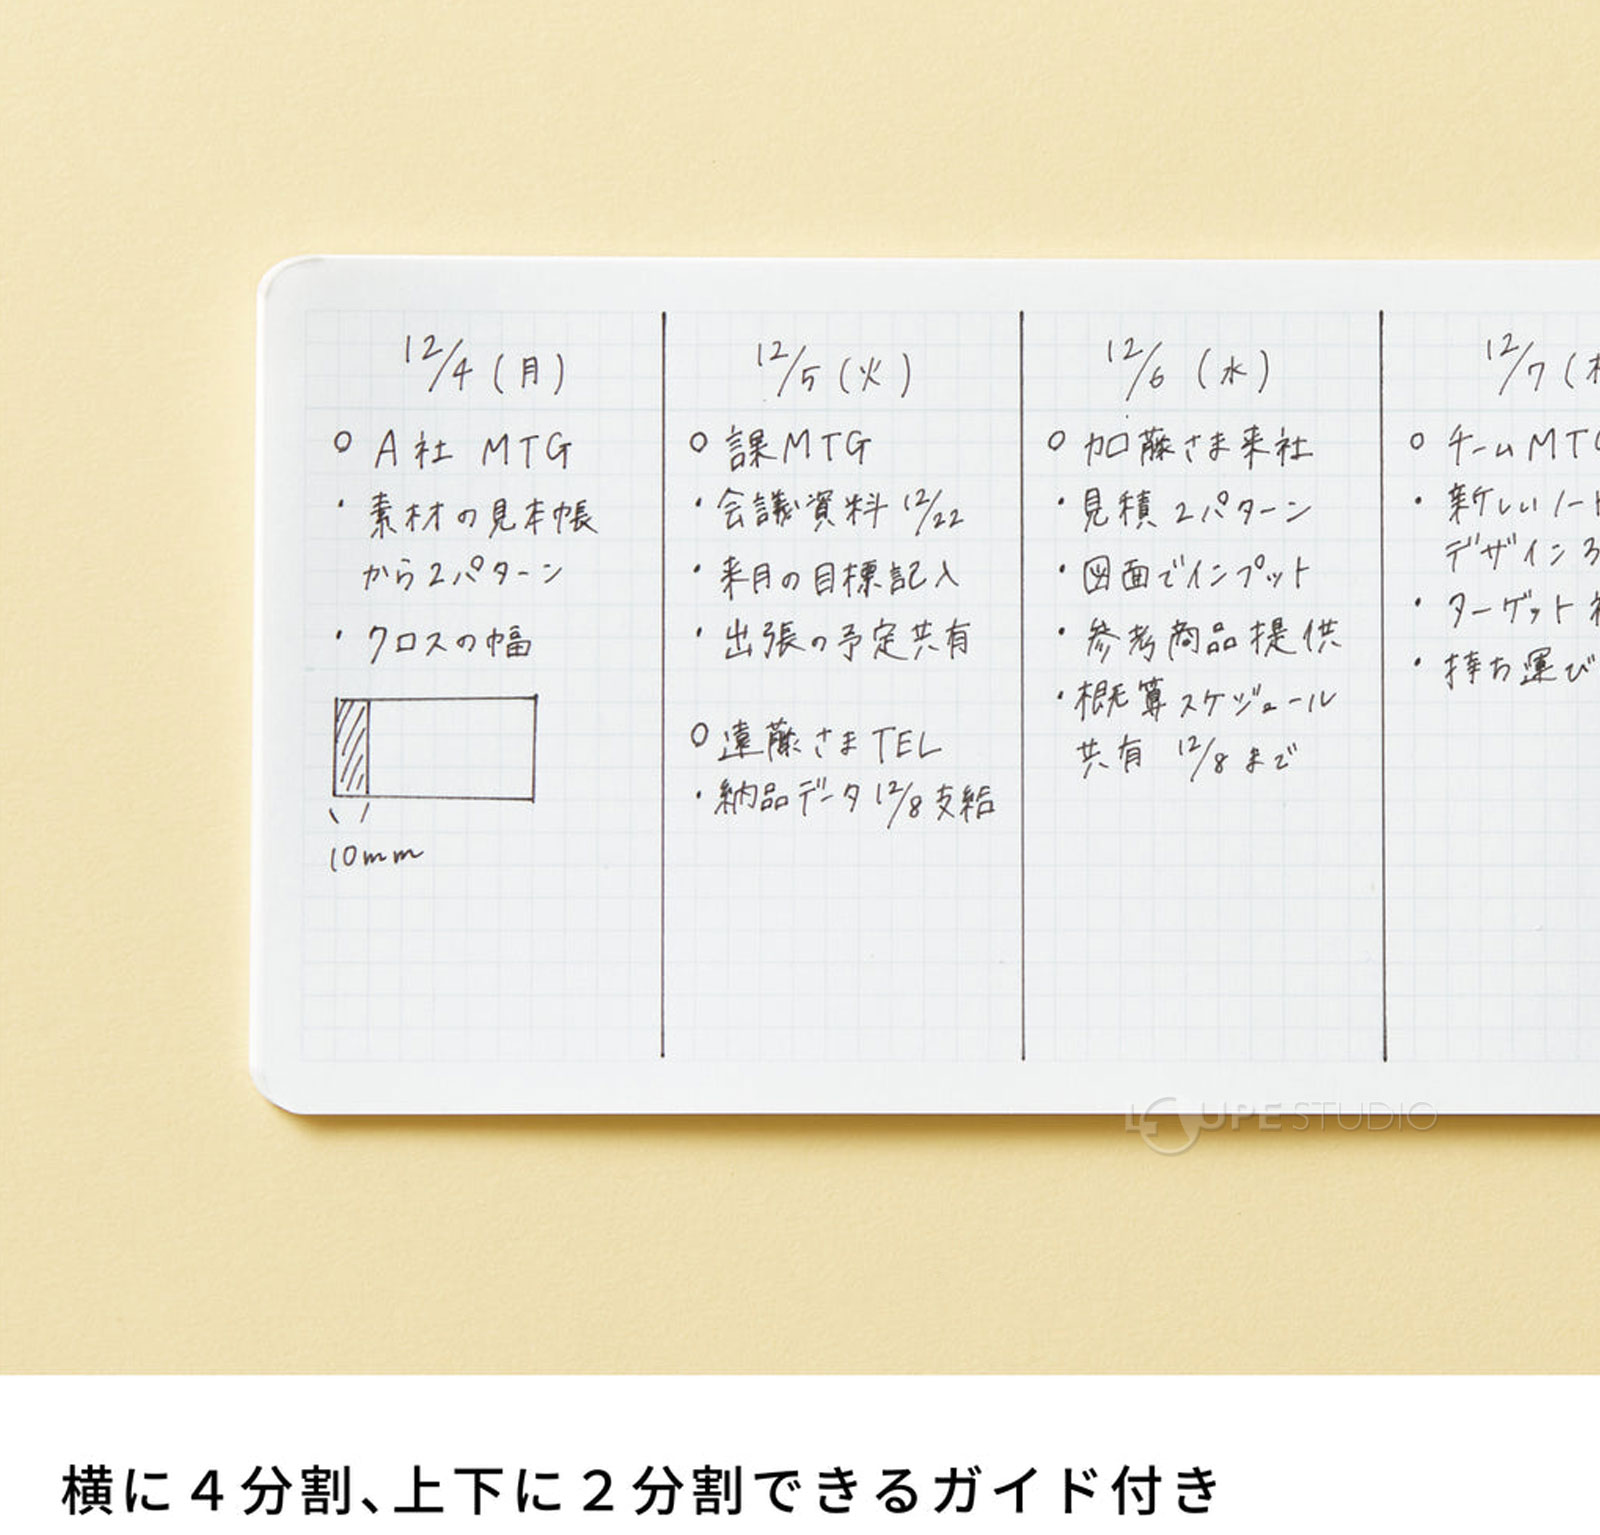 12/4(月)
○ A社 MTG
・素材の見本帳
から2パターン
・クロスの幅
10mm
12/5(火)
○ 課MTG
・会議資料 12/22
・来月の目標記入
・出張の予定共有
○ 遠藤さまTEL
・納品データ 12/8支給
12/6(水)
○ 加藤さま来社
・見積 2パターン
・図面でインプット
・参考商品提供
・概算スケジュール
共有 12/8 まで
12/7(
○ チームMTG
・新しいノート
デザイン3
・ターゲット
・持ち運び
LOUPE STUDIO
横に４分割、上下に２分割できるガイド付き